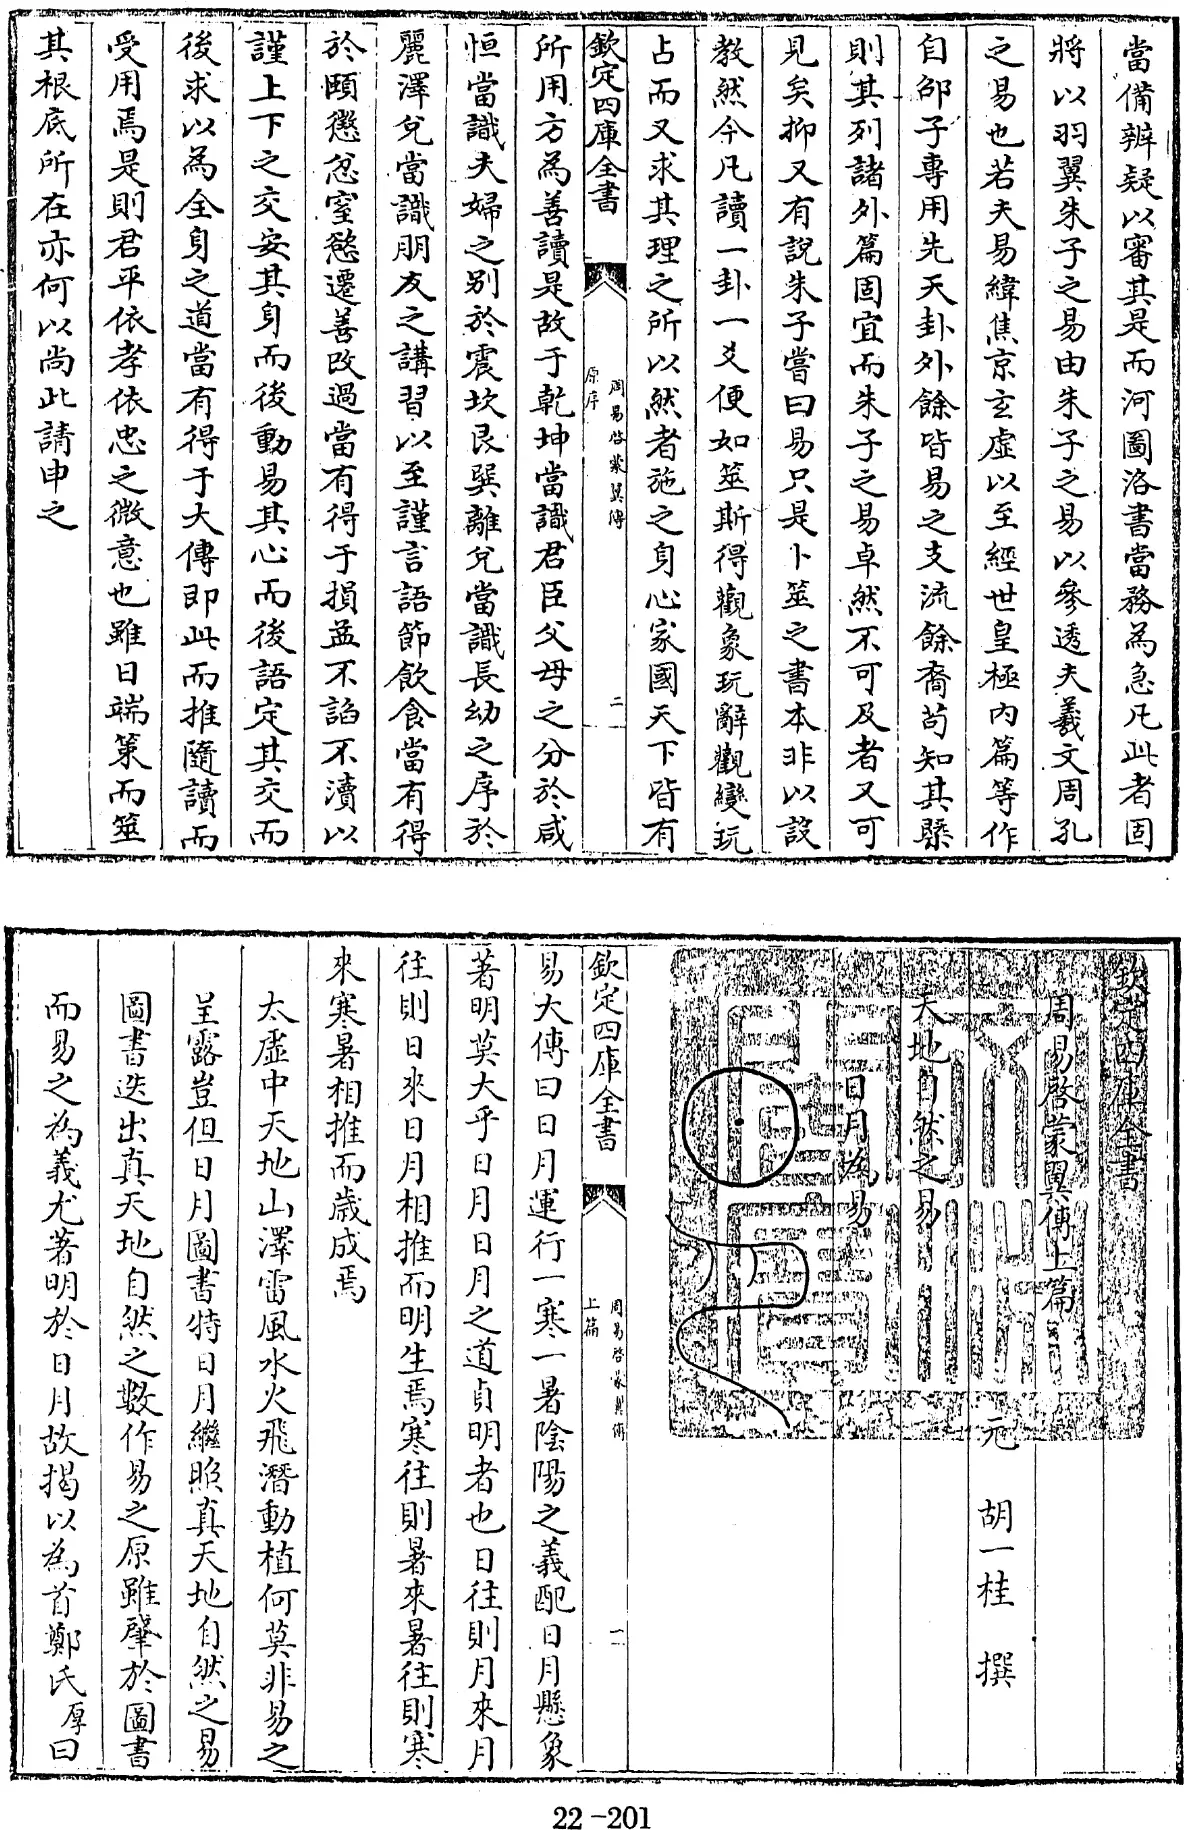 當備辨疑以審其是而河圖洛書當務為急凡此者固
將以羽翼朱子之易由朱子之易以參透夫羲文周孔
之易也若夫易緯焦京玄虛以至經世皇極內篇等作
自邵子專用先天卦外餘皆易之支流餘裔苟知其槩
則其列諸外篇固宜而朱子之易卓然不可及者又可
見矣抑又有說朱子嘗曰易只是卜筮之書本非以設
教然今凡讀一卦一爻便如筮斯得觀象玩辭觀變玩
占而又求其理之所以然者施之身心家國天下皆有
欽定四庫全書
周易啓蒙翼傳
原序
二
所用方為善讀是故于乾坤當識君臣父母之分於咸
恒當識夫婦之别於震坎艮巽離兌當識長幼之序於
麗澤兌當識朋友之講習以至謹言語節飲食當有得
於頤懲忿窒慾遷善改過當有得于損益不諂不瀆以
謹上下之交安其身而後動易其心而後語定其交而
後求以為全身之道當有得于大傳即此而推隨讀而
受用焉是則君平依孝依忠之微意也雖日端策而筮
其根底所在亦何以尚此請申之
欽定四庫全書
周易啓蒙翼傳上篇
元 胡一桂 撰
天地自然之易
日月為易
欽定四庫全書
周易啓蒙翼傳
上篇
一
易大傳曰日月運行一寒一暑陰陽之義配日月懸象
著明莫大乎日月日月之道貞明者也日往則月來月
往則日來日月相推而明生焉寒往則暑來暑往則寒
來寒暑相推而歲成焉
太虛中天地山澤雷風水火飛潛動植何莫非易之
呈露豈但日月圖書特日月繼照真天地自然之易
圖書迭出真天地自然之數作易之原雖肇於圖書
而易之為義尤著明於日月故揭以為首鄭氏厚曰
22-201